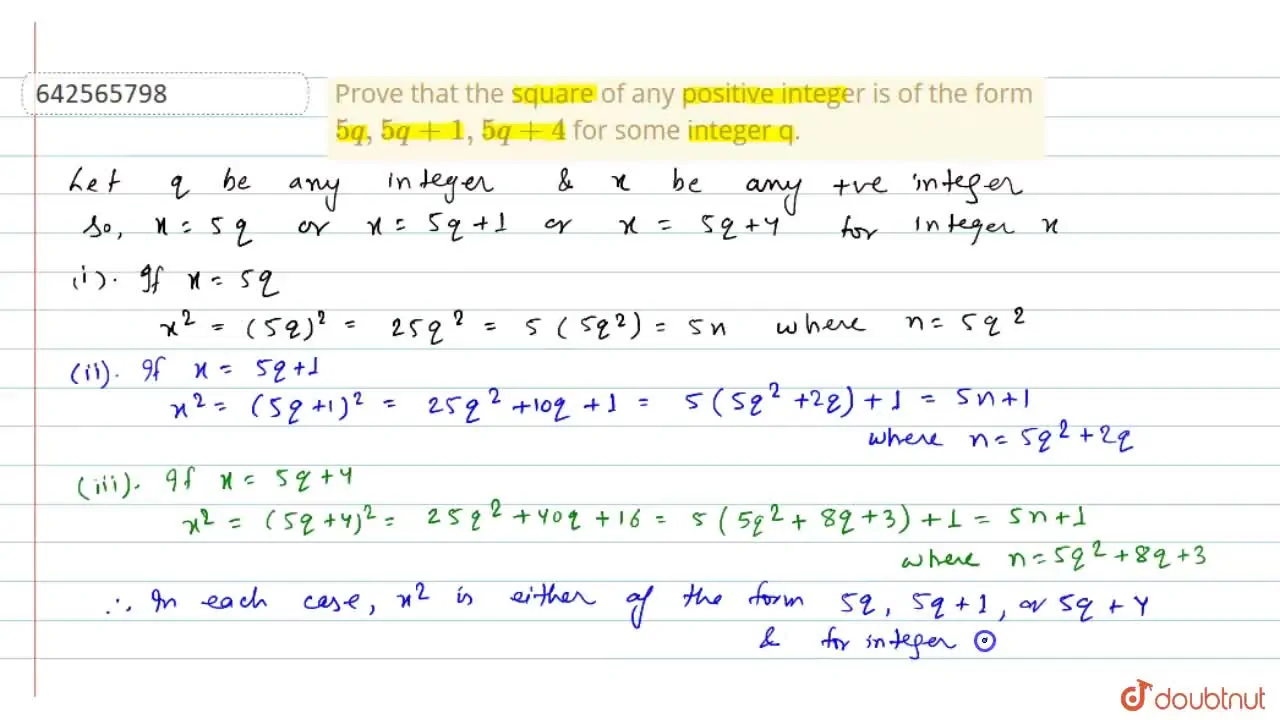 642565798
Prove that the square of any positive integer is of the form
5q, 5q + 1, 5q + 4 for some integer q.
Let q be any integer & x be any +ve integer
So, x = 5q or x = 5q+1 or x = 5q+4 for integer x
(i). If x = 5q
x² = (5q)² = 25q² = 5(5q²) = 5n where n = 5q²
(ii). If x = 5q+1
x² = (5q+1)² = 25q² +10q +1 = 5(5q² +2q) +1 = 5n+1
where n = 5q²+2q
(iii). If x = 5q+4
x² = (5q+4)² = 25q²+40q+16 = 5(5q²+8q+3)+1 = 5n+1
where n = 5q²+8q+3
∴ In each case, x² is either of the form 5q, 5q+1, or 5q+4
& for integer
doubtnut